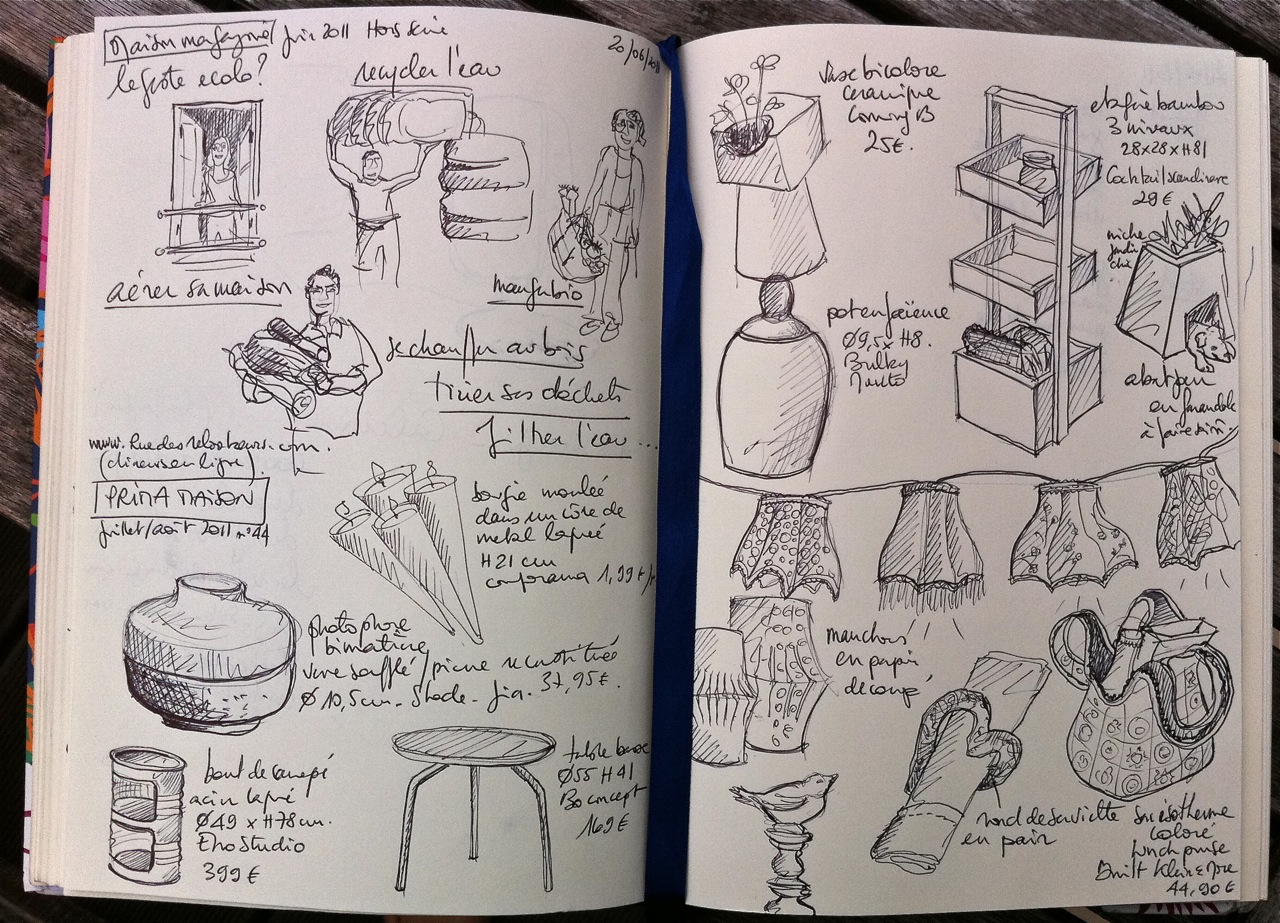 Maison magazine juin 2011 Hors série
20/06/2011
le geste ecolo?
recycler l'eau
aérer sa maison
manger bio
se chauffer au bois
trier ses déchets
filtrer l'eau...
www.Ruedes
(dineurs en ligne).
PRIMA MAISON
juillet/août 2011 n°44
bougie moulée
dans un cône de
metal laqué
H 21 cm
conforama 1,99 €
photophore
bimatière
verre soufflé/pierre reconstituée
Ø 10,5 cm. Shade. 37,95 €.
bout de canapé
acier laqué
Ø 49 x H 78 cm.
EhoStudio
399 €
table basse
Ø55 H41
Boconcept
169 €
Vase bicolore
ceramique
Coming B
25 €.
etagère bambou
3 niveaux
28x28xH81
Cocktail scandinave
29 €
niche
jardin
chic
pot en faïence
Ø9,5 x H8.
Bulky
Muuto
abat jour
en
à faire
manchons
en papier
découpé
nœud de serviette
en pain
sac isotherme
coloré
lunch purse
Built
44,90 €